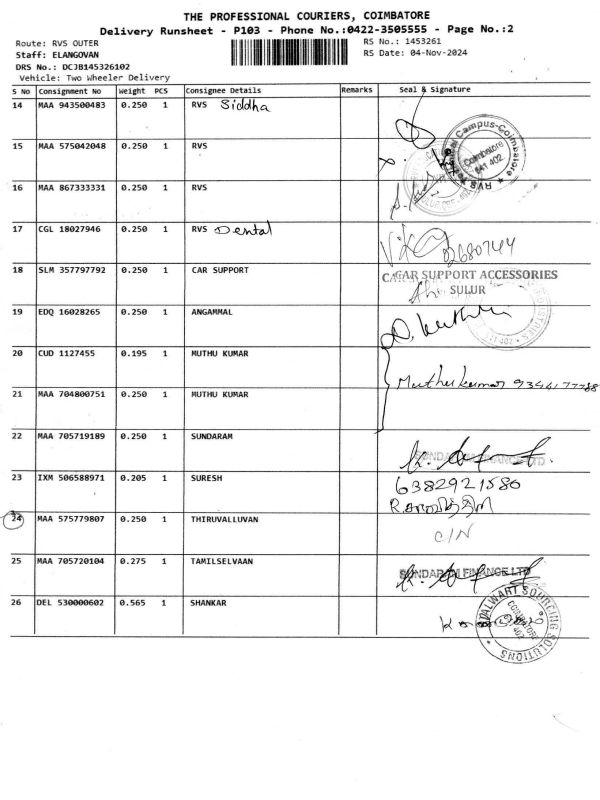 THE PROFESSIONAL COURIERS, COIMBATORE
Delivery Runsheet - P103 - Phone No.:0422-3505555 - Page No.:2
Route: RVS OUTER
RS No.: 1453261
Staff: ELANGOVAN
RS Date: 04-Nov-2024
DRS No.: DCJB145326102
Vehicle: Two Wheeler Delivery
S No Consignment No Weight PCS Consignee Details Remarks Seal & Signature
14 MAA 943500483 0.250 1 RVS Siddha
15 MAA 575042048 0.250 1 RVS
RVS Campus-Coimbatore
Coimbatore
641 402
16 MAA 867333331 0.250 1 RVS
17 CGL 18027946 0.250 1 RVS Dental
18 SLM 357797792 0.250 1 CAR SUPPORT
CAR SUPPORT ACCESSORIES
SULUR
19 EDQ 16028265 0.250 1 ANGAMMAL
20 CUD 1127455 0.195 1 MUTHU KUMAR
Muthukumar 9344177788
21 MAA 704800751 0.250 1 MUTHU KUMAR
22 MAA 705719189 0.250 1 SUNDARAM
SUNDARAM FINANCE LTD
23 IXM 506588971 0.205 1 SURESH
6382921580
24 MAA 575779807 0.250 1 THIRUVALLUVAN
C/N
25 MAA 705720104 0.275 1 TAMILSELVAAN
SUNDARAM FINANCE LTD
26 DEL 530000602 0.565 1 SHANKAR
STALWART SOURCING SOLUTIONS
COIMBATORE